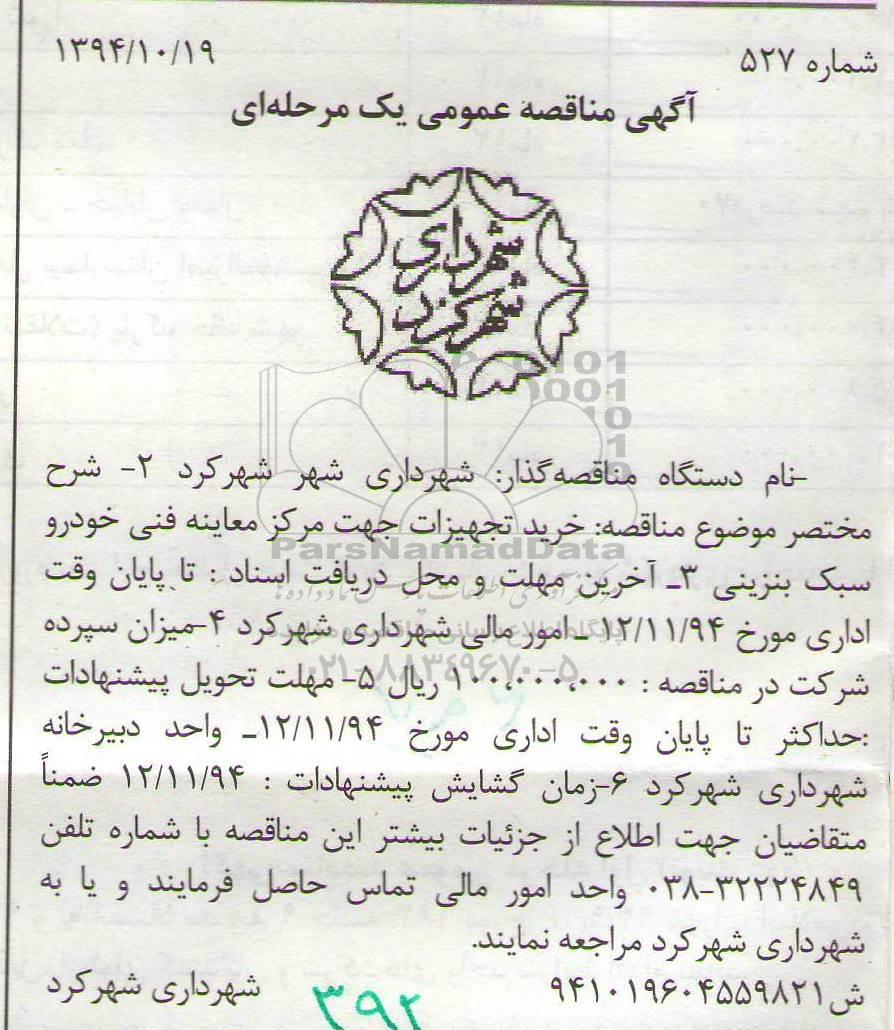 شماره ۵۲۷
۱۳۹۴/۱۰/۱۹
آگهی مناقصه عمومی یک مرحله‌ای
شهرداری
شهرکرد
ParsNamadData
۰۲۱-۸۸۳۴۹۶۷۰-۵
-نام دستگاه مناقصه‌گذار: شهرداری شهر شهرکرد ۲- شرح
مختصر موضوع مناقصه: خرید تجهیزات جهت مرکز معاینه فنی خودرو
سبک بنزینی ۳ـ آخرین مهلت و محل دریافت اسناد : تا پایان وقت
اداری مورخ ۱۲/۱۱/۹۴ ـ امور مالی شهرداری شهرکرد ۴-میزان سپرده
شرکت در مناقصه : ۱۰۰،۰۰۰،۰۰۰ ریال ۵- مهلت تحویل پیشنهادات
:حداکثر تا پایان وقت اداری مورخ ۱۲/۱۱/۹۴ـ واحد دبیرخانه
شهرداری شهرکرد ۶-زمان گشایش پیشنهادات : ۱۲/۱۱/۹۴ ضمناً
متقاضیان جهت اطلاع از جزئیات بیشتر این مناقصه با شماره تلفن
۰۳۸-۳۲۲۲۴۸۴۹ واحد امور مالی تماس حاصل فرمایند و یا به
شهرداری شهرکرد مراجعه نمایند.
ش۹۴۱۰۱۹۶۰۴۵۵۹۸۲۱
شهرداری شهرکرد
۳۹۲